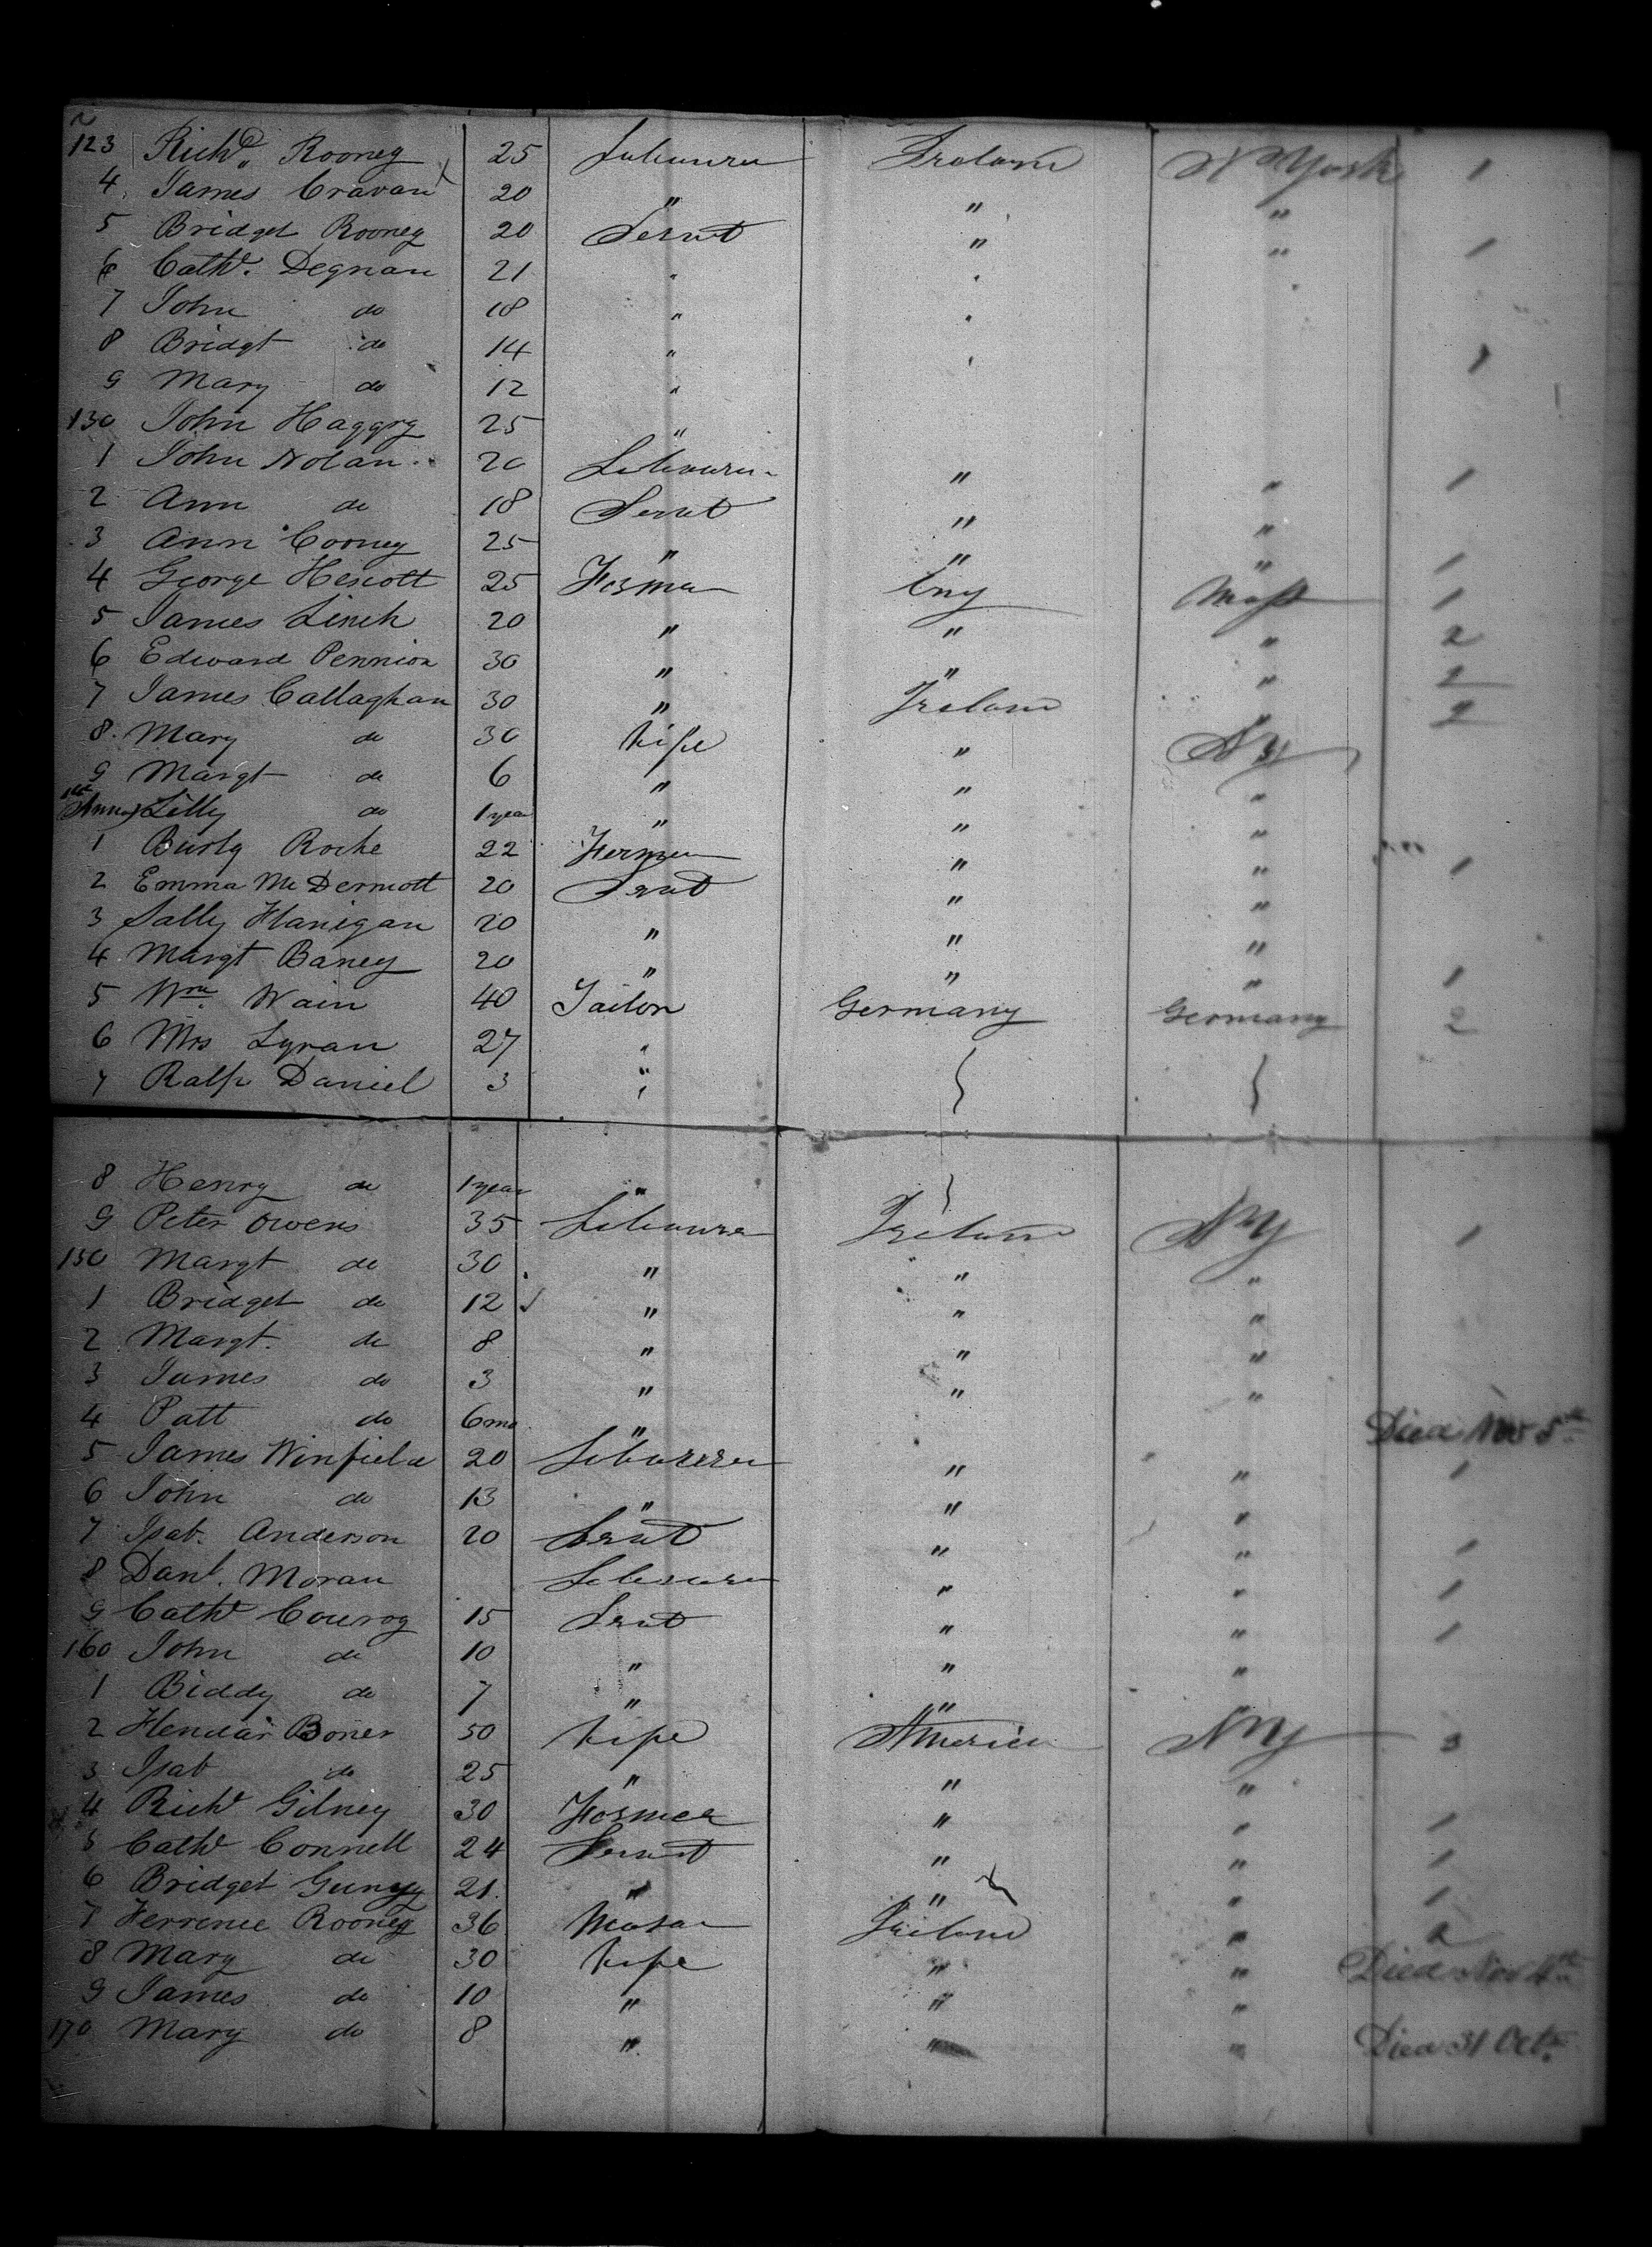 123 Richd. Rooney 25 Labourer Ireland N York 1
4 James Cravan 20 " " "
5 Bridget Rooney 20 Servt " " 1
6 Cathe. Degnan 21 " "
7 John do 18 " "
8 Bridgt do 14 " " 1
9 Mary do 12 "
130 John Haggry 25 "
1 John Nolan 20 Labourer " " 1
2 Ann do 18 Servt " "
3 Ann Cooney 25 " " " 1
4 George Hescott 25 Farmer Eng Mass 1
5 James Linch 20 " " " 2
6 Edward Pennion 30 " " " 2
7 James Callaghan 30 " Ireland " 2
8 Mary do 30 Wife " NY
9 Margt do 6 " " "
Lilly do 1 year " " "
1 Roche 22 Farmer " " 1
2 Emma McDermott 20 Servt " "
3 Sally Flanigan 20 " " "
4 Margt Baney 20 " " " 1
5 Wm. Wain 40 Tailor Germany Germany 2
6 Mrs Lyran 27 "
7 Ralph Daniel 3 "
8 Henry do 1 year "
9 Peter Owens 35 Labourer Ireland NY 1
150 Margt do 30 " " "
1 Bridget do 12 " " "
2 Margt. do 8 " " "
3 James do 3 " " "
4 Patt do 6mo " Died Nov 5th
5 James Winfield 20 Labourer " " 1
6 John do 13 " " "
7 Isab. Anderson 20 Servt " " 1
8 Danl. Moran Labourer " " 1
9 Cathe Conroy 15 Servt " " 1
160 John do 10 " " "
1 Biddy do 7 " "
2 Boner 50 Wife America NY 3
3 Isab do 25 " " "
4 Richd Gilney 30 Farmer " " 1
5 Cathe Connell 24 Servt " " 1
6 Bridget 21 " " " 1
7 Terrence Rooney 36 Mason Ireland " 2
8 Mary do 30 Wife " " Died Nov 4th
9 James do 10 " " "
170 Mary do 8 " " " Died 31 Oct.